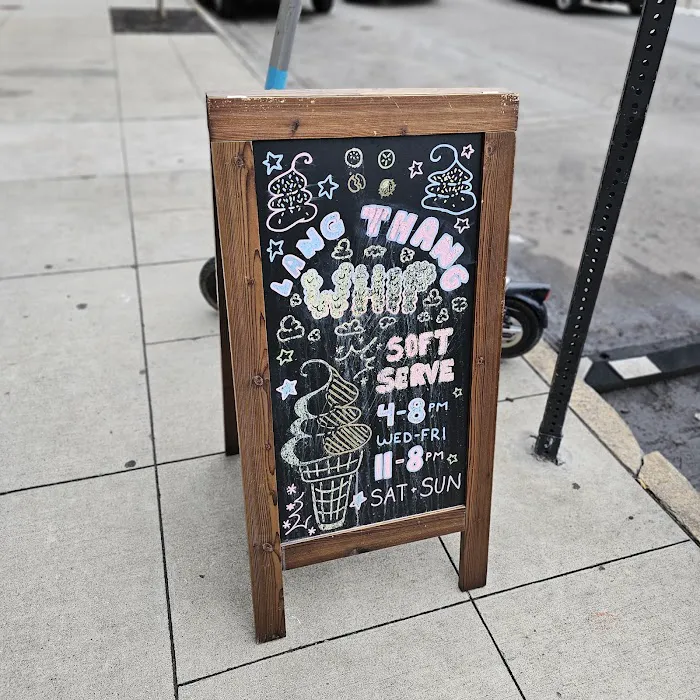 LANG THANG
WHIP
SOFT
SERVE
4-8PM
WED-FRI
11-8PM
SAT+SUN